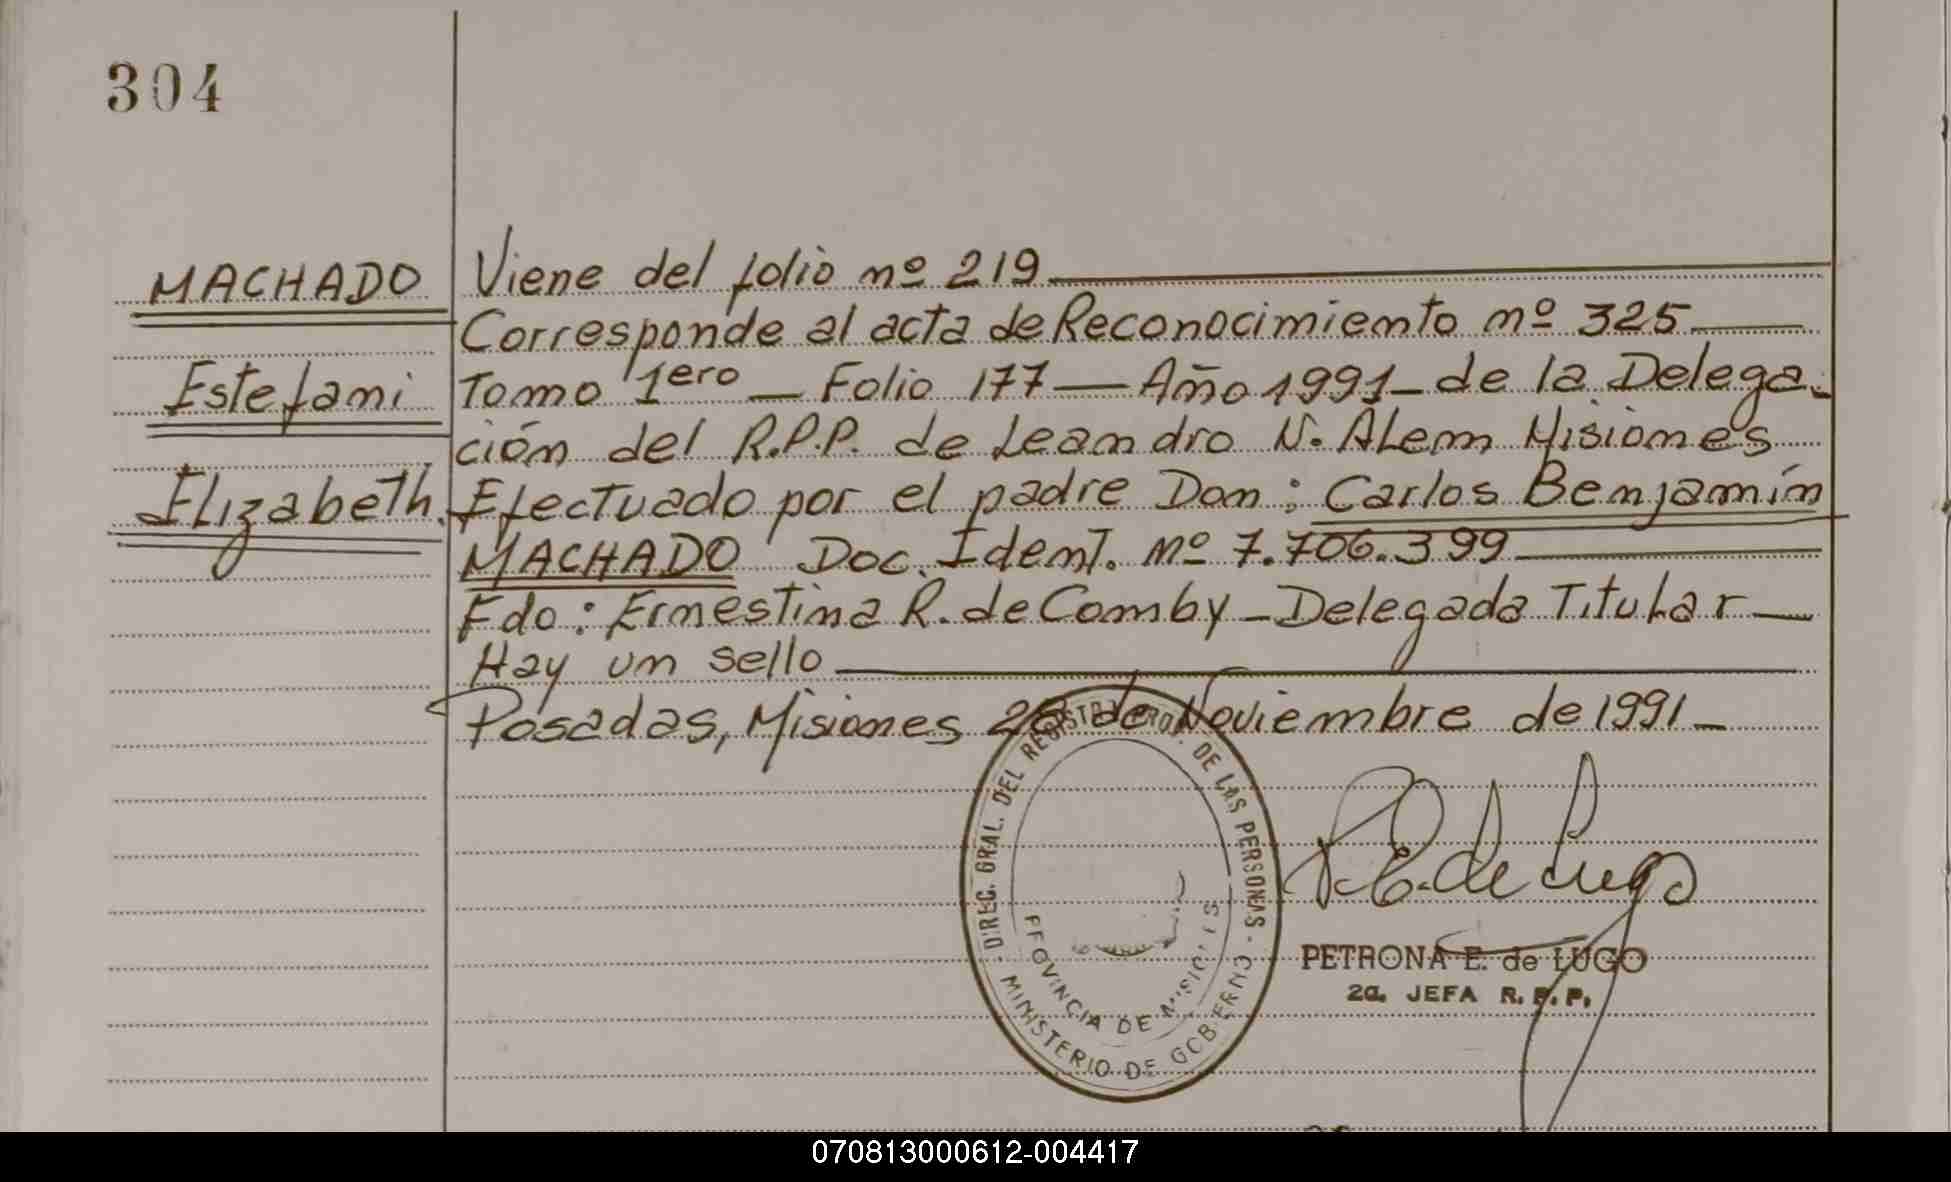 304
MACHADO
Estefani
Elizabeth.
Viene del folio nº 219
Corresponde al acta de Reconocimiento nº 325
Tomo 1ero — Folio 177 — Año 1991 - de la Delega-
ción del R.P.P. de Leandro N. Alem Misiones
Efectuado por el padre Don: Carlos Benjamín
MACHADO Doc. Ident. nº 7.706.399
Fdo: Ernestina R. de Comby - Delegada Titular
Hay un sello
Posadas, Misiones 28 de Noviembre de 1991 -
DIREC. GRAL. DEL REGISTRO PROV. DE LAS PERSONAS
MINISTERIO DE GOBIERNO
PROVINCIA DE MISIONES
P.E. de Lugo
PETRONA E. de LUGO
2a. JEFA R.P.P.
070813000612-004417